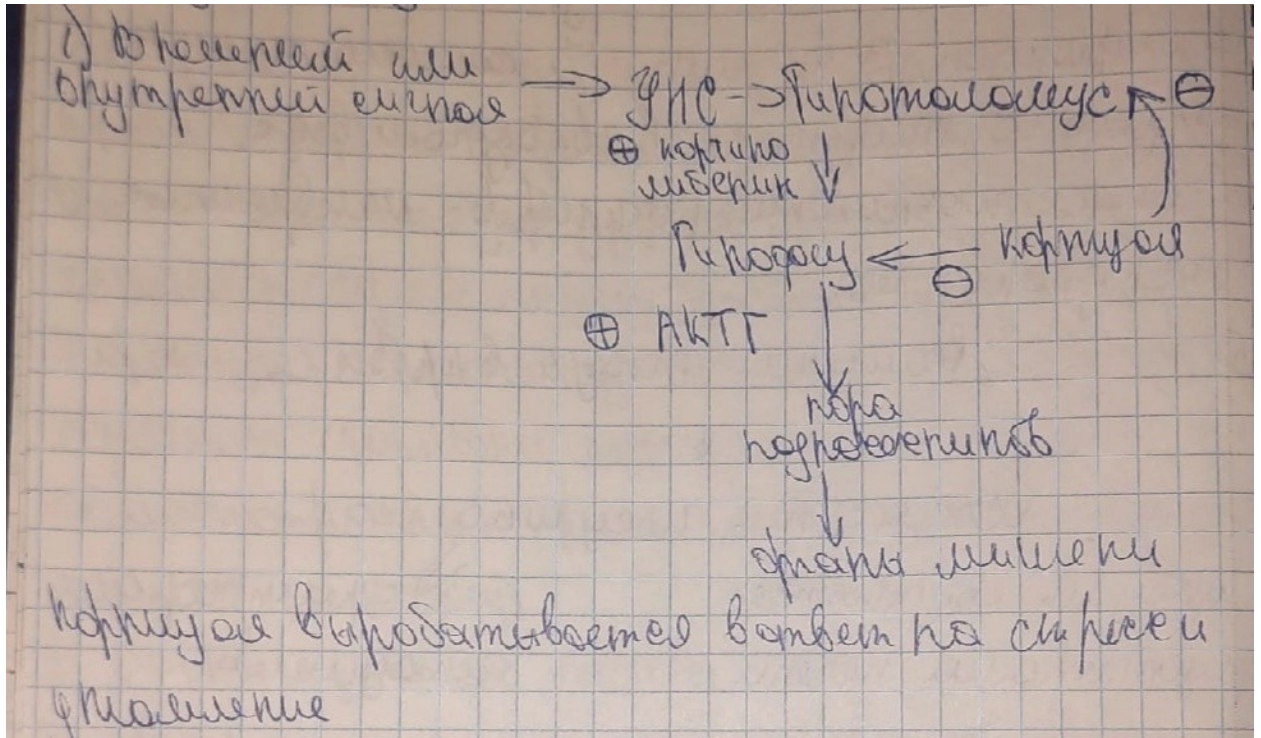 1) Внешний или
внутренний сигнал → ЦНС → Гипоталамус ⊖
⊕ кортико
либерин
Гипофиз ← кортизол
⊖
⊕ АКТГ
кора
надпочечников
органы мишени
кортизол вырабатывается в ответ на стресс и
утомление